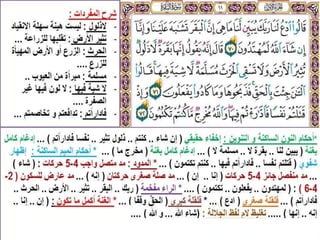 شرح المفردات :
- لاذلول : ليست هينة سهلة الانقياد
- تثير الأرض : تقلبها للزراعة ...
- الحرث : الزرع أو الأرض المهيأة للزرع ....
- مسلمة : مبرأة من العيوب ..
- لا شية فيها : لا لون فيها غير الصفرة ....
- فادارأتم : تدافعتم و تخاصمتم ...
قَالُوا۟ ٱدْعُ لَنَا رَبَّكَ يُبَيِّن لَّنَا مَا هِىَ إِنَّ ٱلْبَقَرَ تَشَٰبَهَ عَلَيْنَا وَإِنَّآ
إِن شَآءَ ٱللَّهُ لَمُهْتَدُونَ ٧٠ قَالَ إِنَّهُۥ يَقُولُ إِنَّهَا بَقَرَةٌ لَّا ذَلُولٌ
تُثِيرُ ٱلْأَرْضَ وَلَا تَسْقِى ٱلْحَرْثَ مُسَلَّمَةٌ لَّا شِيَةَ فِيهَا قَالُوا۟
ٱلْـَٰٔنَ جِئْتَ بِٱلْحَقِّ فَذَبَحُوهَا وَمَا كَادُوا۟ يَفْعَلُونَ ٧١ وَإِذْ
قَتَلْتُمْ نَفْسًا فَٱدَّٰرَْٰٔتُمْ فِيهَا وَٱللَّهُ مُخْرِجٌ مَّا كُنتُمْ تَكْتُمُونَ ٧٢
*أحكام النون الساكنة و التنوين : إخفاء حقيقي ( إن شاء .. كنتم.. ذلول تثير .. نفسا فادارأتم ) ... إدغام كامل
بغنة (يبين لنا .. بقرة لا .. مسلمة لا ) .. إدغام كامل بغنة ( مخرج ما ) ... *أحكام الميم الساكنة : إظهار
شفوي ( قتلتم نفسا .. فادارأتم فيها .. كنتم تكتمون ) ... *المدود- مد متصل واجب 4-5 حركات : ( شاء )
... مد منفصل جائز 4-5 حركات ( إنا .. إن ) ... مد صلة صغرى حركتان ( إنه .. إنها) ... مد عارض للسكون 2-
4-6 ) : ( لمهتدون .. يفعلون .. تكتمون) ... *الراء مفخمة ( ربك .. البقر .. تثير .. الأرض .. الحرث ..
فادارأتم ) ... *قلقلة صغرى (ادع ) ... قلقلة كبرى (الحق وقفا ) ... *الغنة أكمل ما تكون : ( إن .. إنا ..
إنه .. إنها ) ..... تغليظ لام لفظ الجلالة : (شاء الله ... و الله ) ....